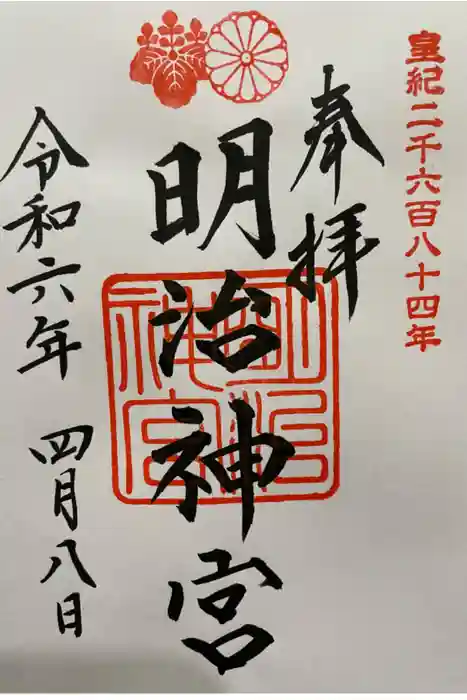 皇紀二千六百八十四年
奉拝
明治神宮
明治神宮
令和六年
四月八日